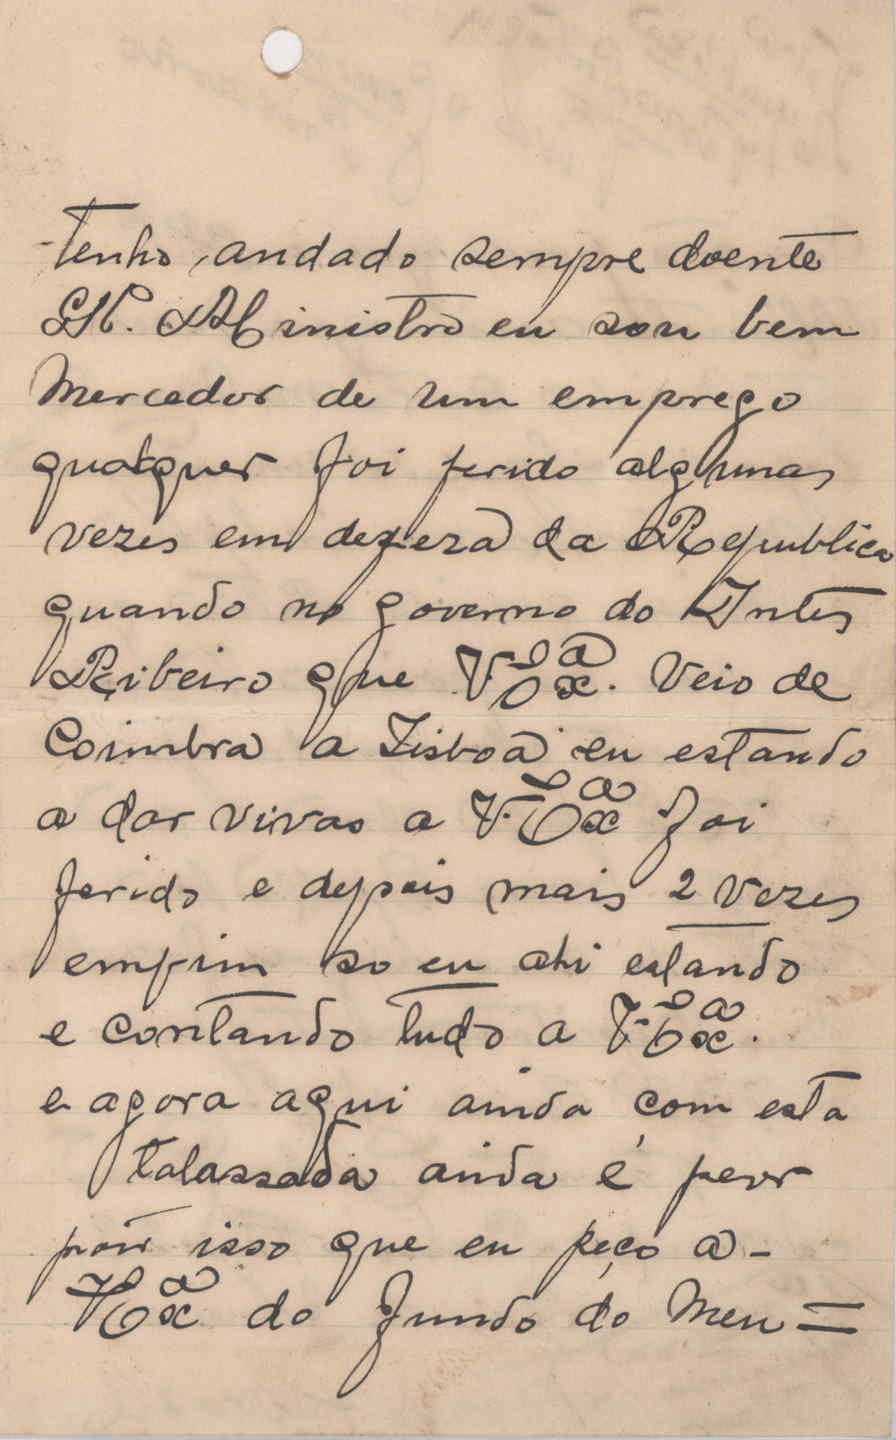 tenho andado sempre doente
Sr. Ministro eu sou bem
Mercedor de um emprego
qualquer foi ferido algumas
vezes em defeza da Republica
quando no governo do Intes
Ribeiro que V. Exª. Veio de
Coimbra a Lisboa eu estando
a dar vivas a V. Exª foi
ferido e depois mais 2 Vezes
emfim so eu ahi estando
e contando tudo a V. Exª.
e agora aqui ainda com esta
talassada ainda é peor
por isso que eu peço a -
V Exª do fundo do Meu =